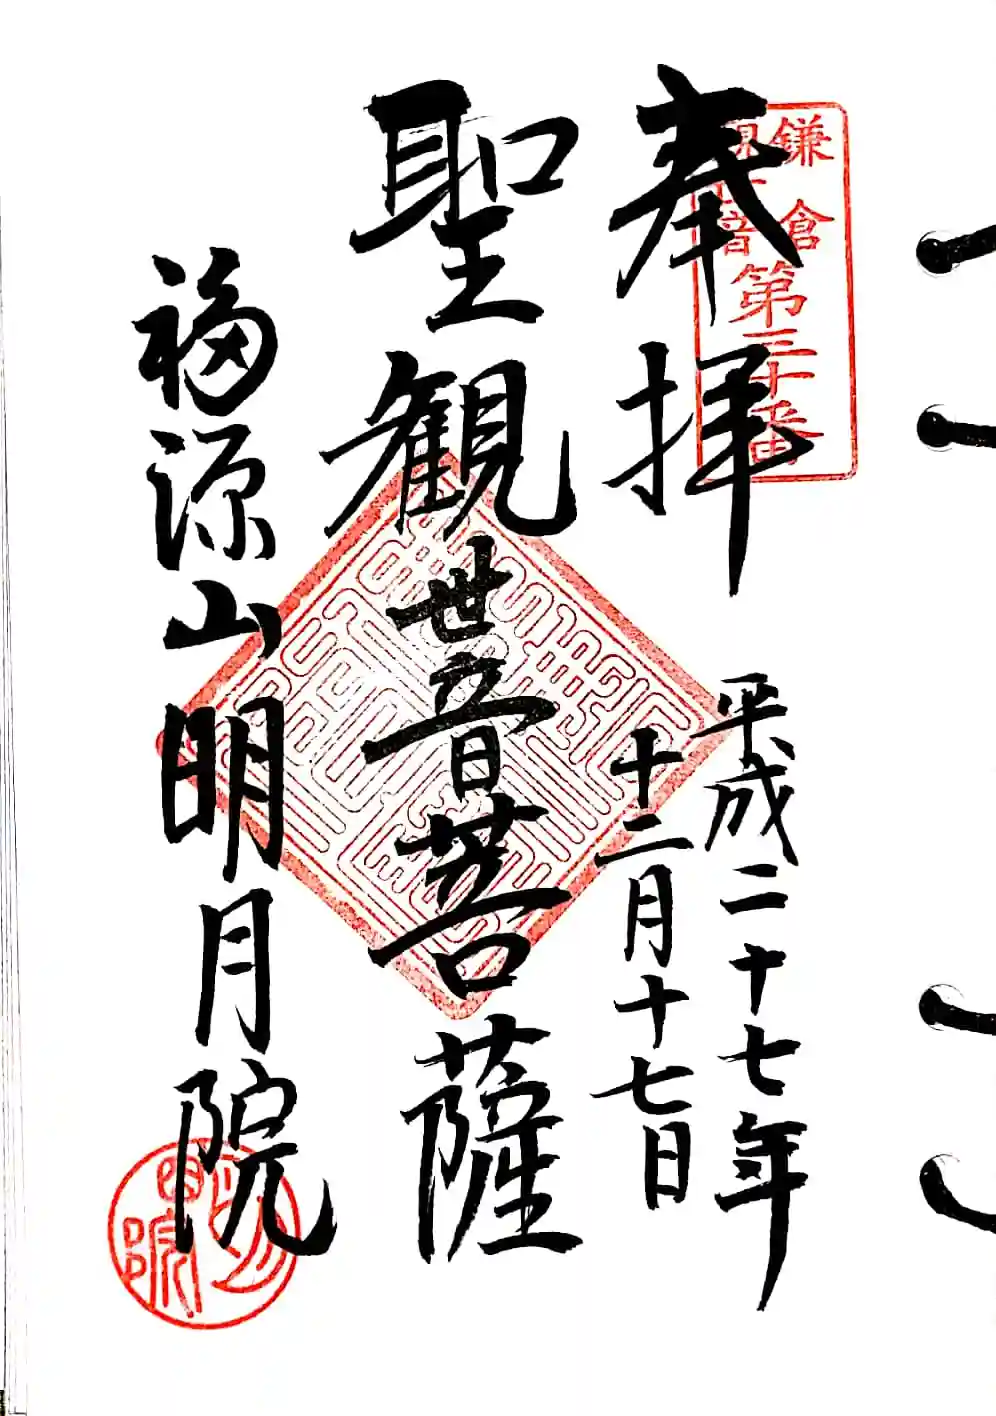 奉拝
鎌倉
観音
第三十番
平成二十七年
十二月十七日
聖観世音菩薩
福源山明月院